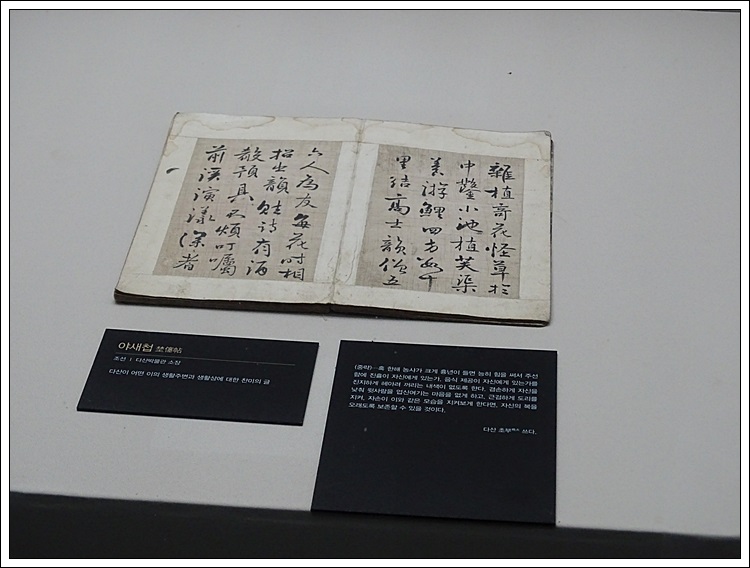 雜植奇花怪草於
中鑿小池植芙蕖
養游鯉四方數千
里結高士韻僧五
六人為友每花時相
招出韻賦詩有酒
殽預具不煩叮囑
前溪演漾深者
야새첩
조선 | 다산박물관 소장
다산이 어떤 이의 생활주변과 생활상에 대한 찬미의 글
(중략)…혹 한해 농사가 크게 흉년이 들면 능히 힘을 써서 주선
함에 진휼이 자신에게 있는가, 음식 제공이 자신에게 있는가를
진지하게 헤아려 꺼리는 내색이 없도록 한다. 겸손하게 자신을
낮춰 윗사람을 업신여기는 마음을 없게 하고, 근검하게 도리를
지켜, 자손이 이와 같은 모습을 지켜보게 한다면, 자신의 복을
오래도록 보존할 수 있을 것이다.
다산 초부 쓰다.